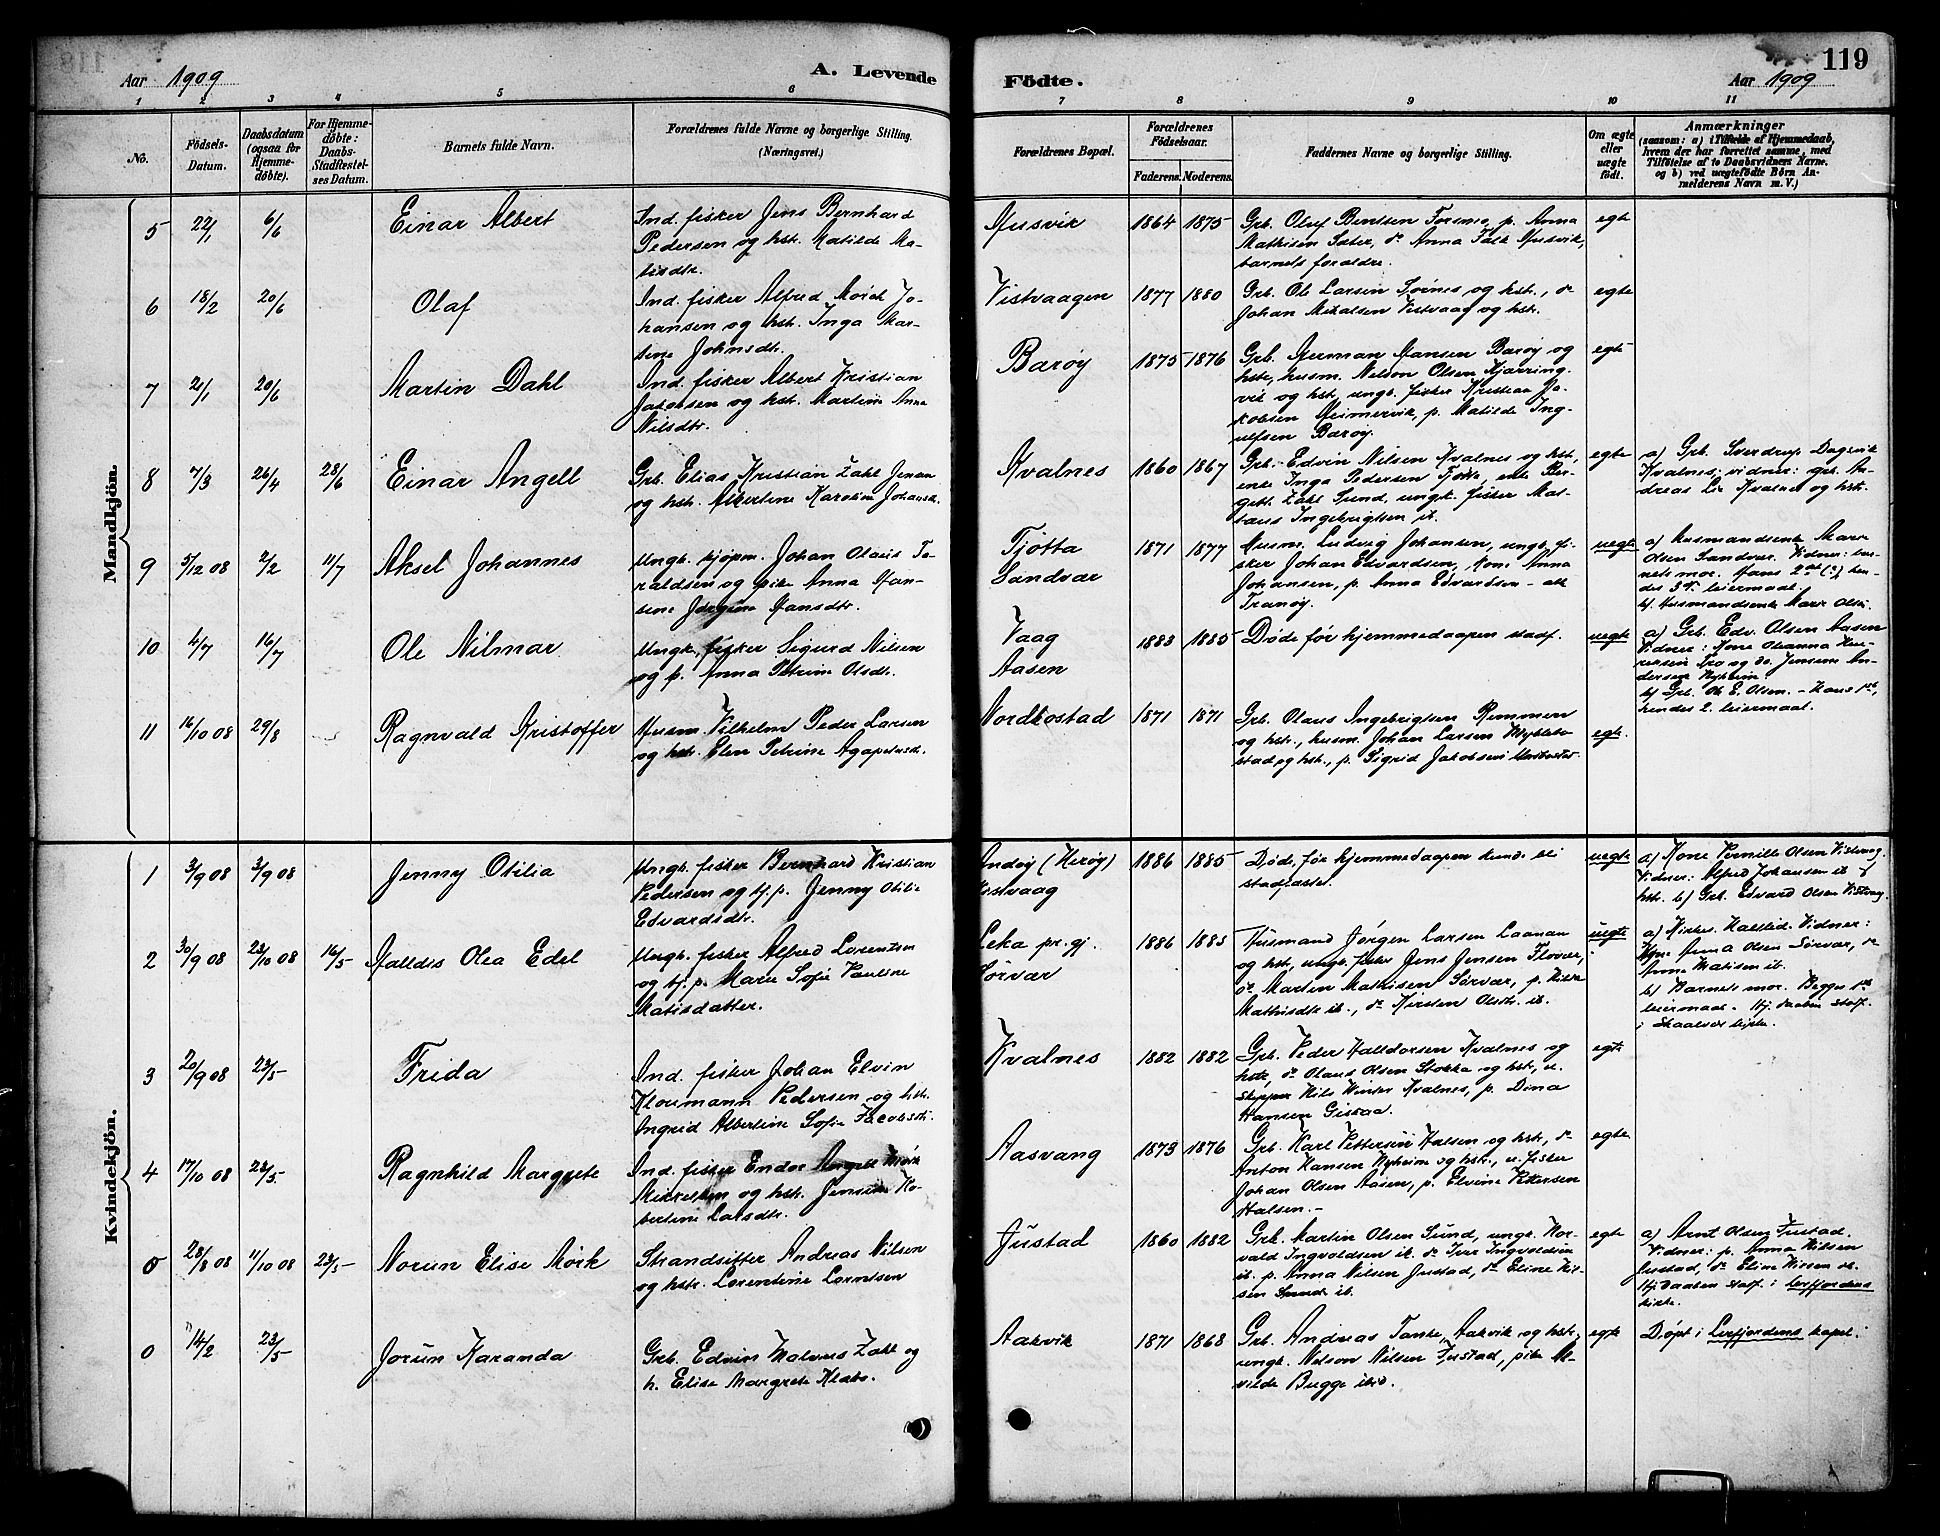 119
Aar 1909
A. Levende
Födte.
Aar 1909
1 2 3 4 5 6 7 8 9 10 11
No.
Födsels-
Datum.
Daabsdatum
(ogsaa for
Hjemme-
döbte).
For Hjemme-
döbte:
Daabs-
Stadfæstel-
ses Datum.
Barnets fulde Navn.
Forældrenes fulde Navne og borgerlige Stilling.
(Næringsvei.)
Forældrenes Bopæl.
Forældrenes
Födselsaar.
Faderens. Moderens.
Faddernes Navne og borgerlige Stilling.
Om ægte
eller
uægte
födt.
Anmærkninger
(saasom: a) i Tilfælde af Hjemmedaab,
hvem der har forrettet samme, med
Tilföielse af to Daabsvidners Navne.
og b) ved uægtefödte Börn An-
melderens Navn m. V.)
Mandkjön.
5 22/1 6/6 Einar Albert
Ind. fisker Jens Bernhard
Pedersen og hst. Matilde Ma-
tisdtr.
Husvik 1864 1875
Grb. Oluf Bentsen Forsmo, p. Anna
Mathisen Sæter, do Anna Falk Husvik,
barnets forældre.
egte
6 18/2 20/6 Olaf
Ind. fisker Alfred Mörch Jo-
hansen og hst. Inga Mar-
tine Johnsdtr.
Vistvaagen 1877 1880
Grb. Ole Larsen Sörnes og hst., do
Johan Mikalsen Vistvaag og hst.
egte
7 2/1 20/6 Martin Dahl
Ind. fisker Albert Kristian
Jakobsen og hst. Martine Anna
Nilsdtr.
Barøy 1875 1876
Grb. Herman Hansen Barøy og
hst., husm. Nelson Olsen Kjærring-
vik og hst, ungk. fisker Kristian Ja-
kobsen Heimervik, p. Matilde Ing-
ulfsen Barøy.
egte
8 7/3 26/4 28/6 Einar Angell
Grb. Elias Kristian Zahl Jensen
og hst. Albertine Karoline Johansdt.
Kvalnes 1860 1867
Grb. Edvin Nilsen Kvalnes og hst,
enke Inga Pedersen Tjötta, enke Ber-
get. Zahl Sund, ungk. fisker Mat-
taus Ingebrigtsen ib.
egte
a) Grb. Sverdrup Dagsvik
Kvalnes; vidner: grb. An-
dreas Lie Kvalnes og hst.
9 5/12 08 2/2 11/7 Aksel Johannes
Ungk. kjøpm. Johan Olaus To-
raldsen og pike Anna Han-
sine Jørgine Hansdtr.
Tjøtta
Sandvær
1871 1877
Husm. Ludvig Johansen, ungk. fi-
sker Johan Edvardsen, Kone Anna
Johansen, p. Anna Edvardsen - alle
Tranøy.
uegte
a) Husmandsenke Marie
Olsen Sandvær. Vidner: bar-
nets mor. Hans 2det (?), hen-
des 3die leiermaal.
b) Husmandsenke Marie Olsen.
10 4/7 16/7 Ole Nilmar
Ungk. fisker Sigurd Nilsen
og p. Anna Petrine Olsdtr.
Vaag
Aasen
1883 1885
Døde før hjemmedaapen stadf.
uegte
a) Grb. Edv. Olsen Aasen
Vidner: Kone Oleanna Hen-
riksen Tro og do. Jensine An-
dersen Nyheim
b) Grb. Ole E. Olsen. - Hans 1ste,
hendes 2. leiermaal.
11 16/10 08 29/8 Ragnvald Kristoffer
Husm. Vilhelm Peder Larsen
og hst. Elen Petrine Agapetusdt.
Nordkostad 1871 1871
Grb. Olaus Ingebrigtsen Remmen
og hst., husm. Johan Larsen Myklebo-
stad og hst., p. Sigrid Jakobsen
egte.
Kvindekjön.
1 3/9 08 3/9 08 Jenny Otilia
Ungk. fisker Bernhard Kristian
Pedersen og tj. p. Jenny Otilie
Edvardsdtr.
Andøy (Herøy)
Vistvaag
1886 1885
Døde før hjemmedaapen kunde bli
stadfæstet.
uegte
a) Kone Pernille Olsen Vistvaag.
Vidner: Alfred Johansen ib. &
hst. b) Grb. Edvard Olsen Vistvaag.
2 30/9 08 23/10 08 16/5 Halldis Olea Edel
Ungk. fisker Alfred Lorentsen
og tj. p. Marie Sofie Pauline
Matisdatter.
Leka pr.gj.
Sörvær
1886 1885
Husmand Jörgen Larsen Laanan
og hst, ungk. fisker Jens Jensen Flovær,
do. Marten Mathisen Sørvær, p. Hilda
Mathisdtr ib., do Kirsten Olsdtr. ib.
uegte
a) Kirkes. Halstid. Vidner:
Kone Anna Olsen Sörvær, do
Anne Matisen ib.
b) Barnets mor. Begges 1ste
leiermaal. Hj. daaben stadf.
i Skaalvær kirke.
3 20/9 08 23/5 Frida
Ind. fisker Johan Elvin
Kloumann Pedersen og hst.
Ingrid Albertine Sofie Jacobsdtr.
Kvalnes 1882 1882
Grb. Peder Halldorsen Kvalnes og
hst., do Olaus Olsen Stokka og hst., u.
skipper Nils Winter Kvalnes, p. Dina
Hansen Gistaa.
egte
4 17/10 08 23/5 Ragnhild Margrete
Ind. fisker Endre Angell Mörk
Mikkelsen og hst. Jensine Ho-
bertine Larsdtr.
Aasvang 1873 1876
Grb. Karl Pettersen Halsen og hst., do
Anton Hansen Nyheim og hst., u. fisker
Johan Olsen Aasen, p. Elvine Pettersen
Halsen. -
egte
0 28/8 08 11/10 08 23/5 Norun Elise Mörk
Strandsitter Andreas Nilsen
og hst. Lorentine Larntsen
Justad 1860 1882
Grb. Martin Olsen Sund, ungk. Nor-
vald Ingvoldsen ib. do Ivar Ingvoldsen
ib. p. Anna Nilsen Justad, do Eline Nil-
sen Sund ib.
egte
a) Arnt Olsen Justad.
Vidner: p. Anna Nilsen
Justad, do Eline Nilsen ib.
Hj. daaben stadf. i Leirfjordens
kirke.
0 14/2 23/5 Jorun Karanda
Grb. Edvin Halvers Zahl og
h. Elise Margrete Klabo.
Aakvik 1871 1868
Grb. Andreas Tanke, Aakvik og hst;
ungk. Nelson Nilsen Justad, pike Al-
vilde Bugge ibid.
egte
Döpt i Leirfjordens kapel.